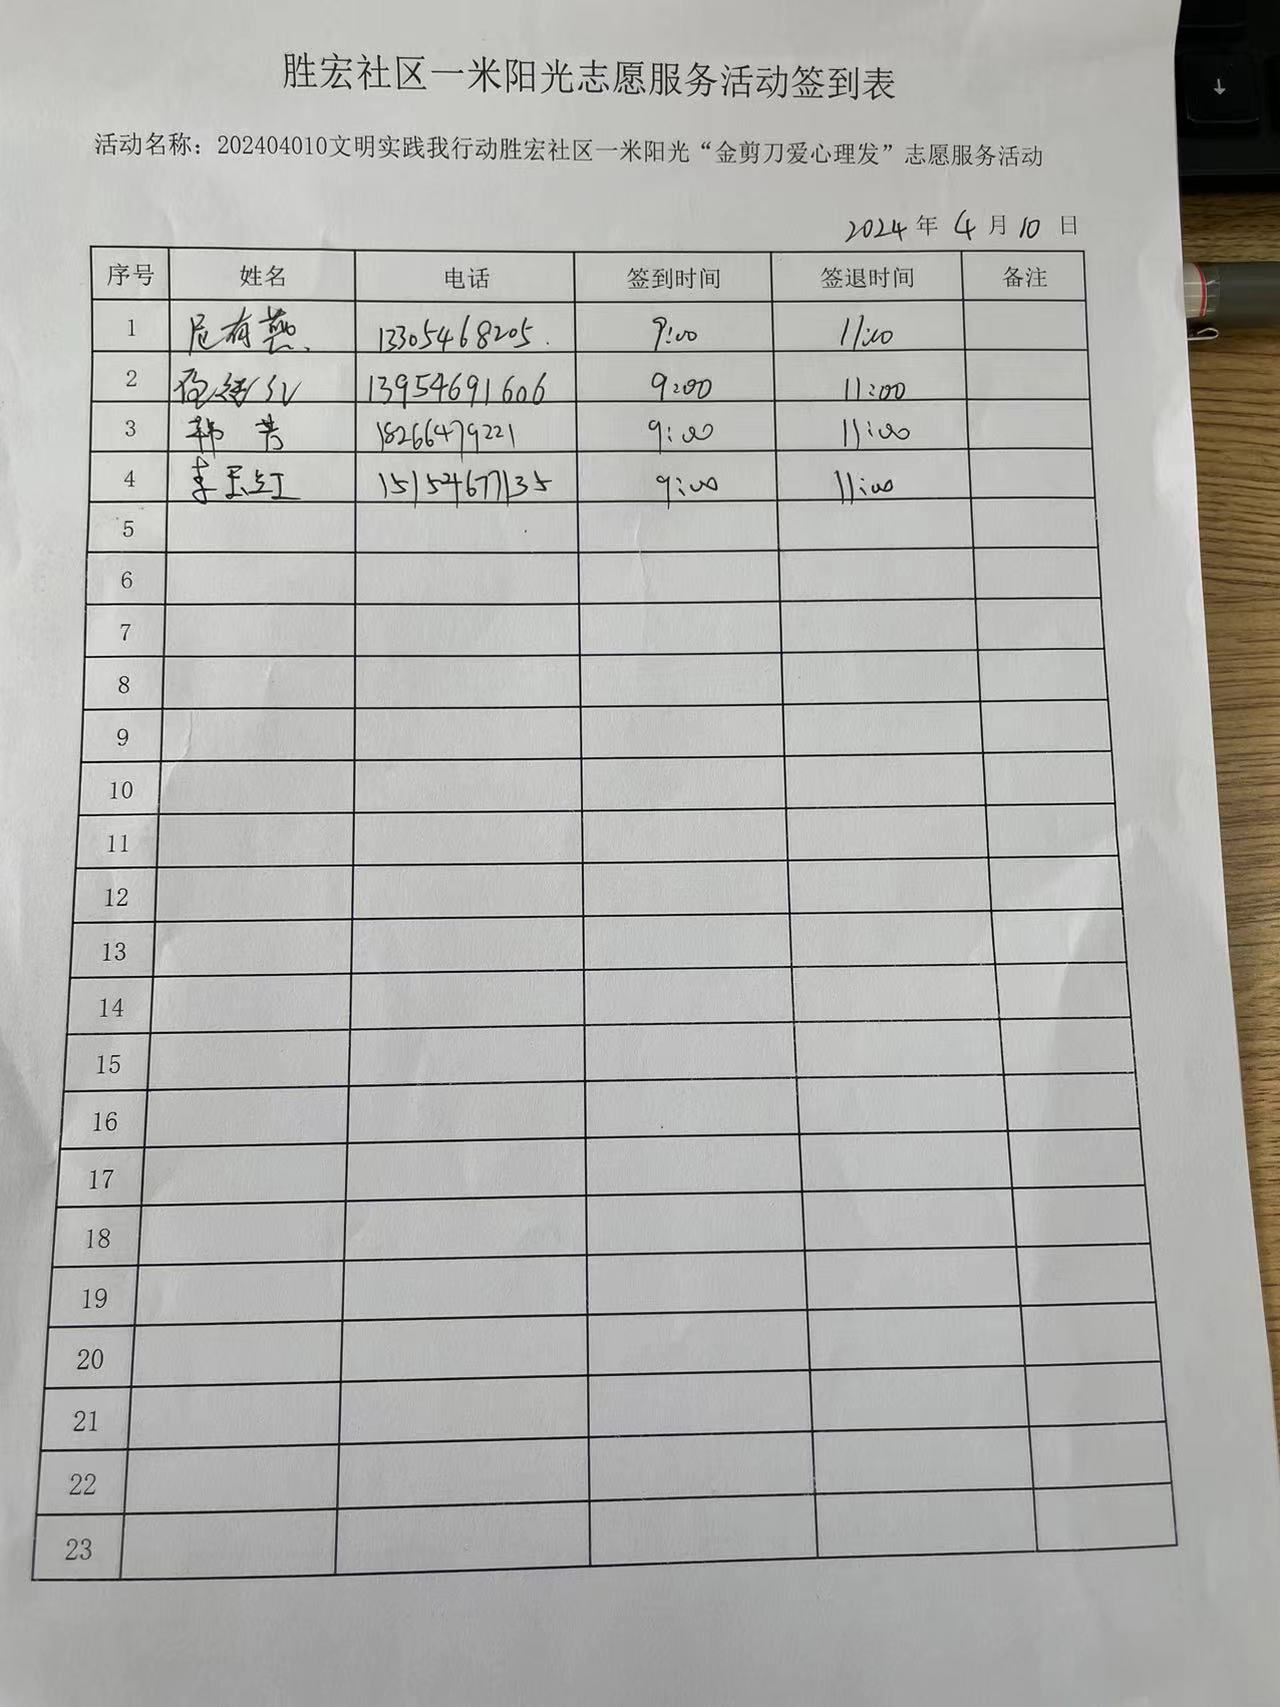 胜宏社区一米阳光志愿服务活动签到表
活动名称：202404010文明实践我行动胜宏社区一米阳光“金剪刀爱心理发”志愿服务活动
2024年4月10日
序号 姓名 电话 签到时间 签退时间 备注
1 尼有燕 13305468205. 9:00 11:00
2 13954691606 9:00 11:00
3 韩芳 18266479221 9:00 11:00
4 李玉红 15154677135 9:00 11:00
5
6
7
8
9
10
11
12
13
14
15
16
17
18
19
20
21
22
23